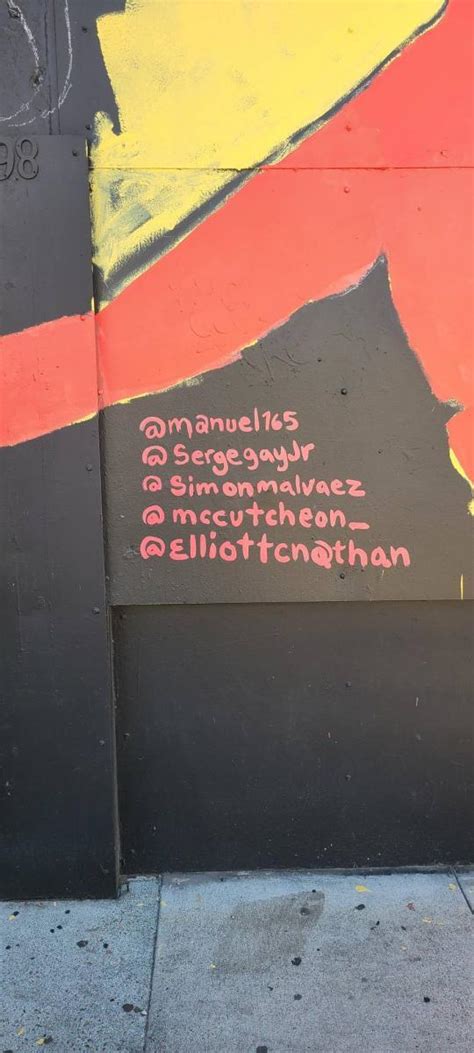 98
@manuel165
@SergegayJr
@Simonmalvaez
@mccutcheon_
@Elliottcn@than